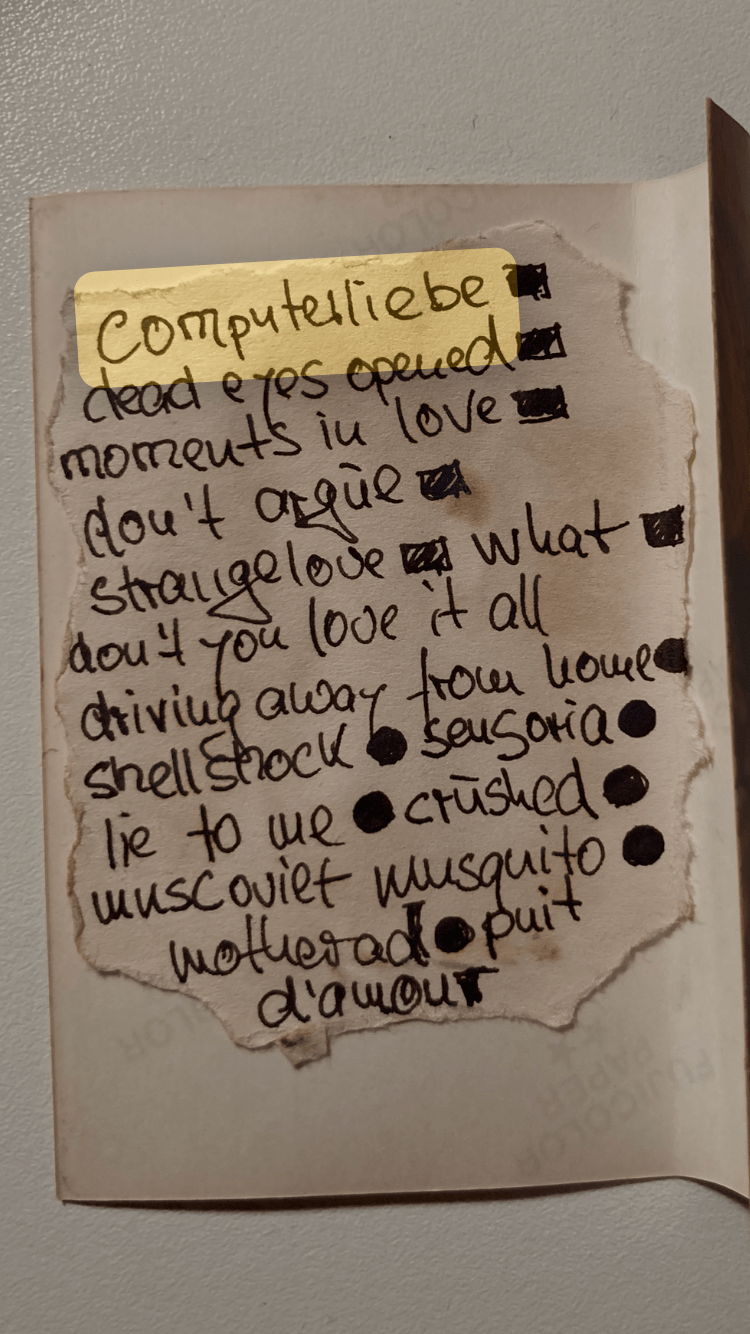 Computerliebe ■
dead eyes opened ■
moments in love ■
don't argūe ■
strangelove ■ what ■
don't you love it all
driving away from home ●
shellshock ● sensoria ●
lie to me ● crūshed ●
muscoviet musquito ●
motherad ● puit
d'amour
FUJICOLOR
PAPER